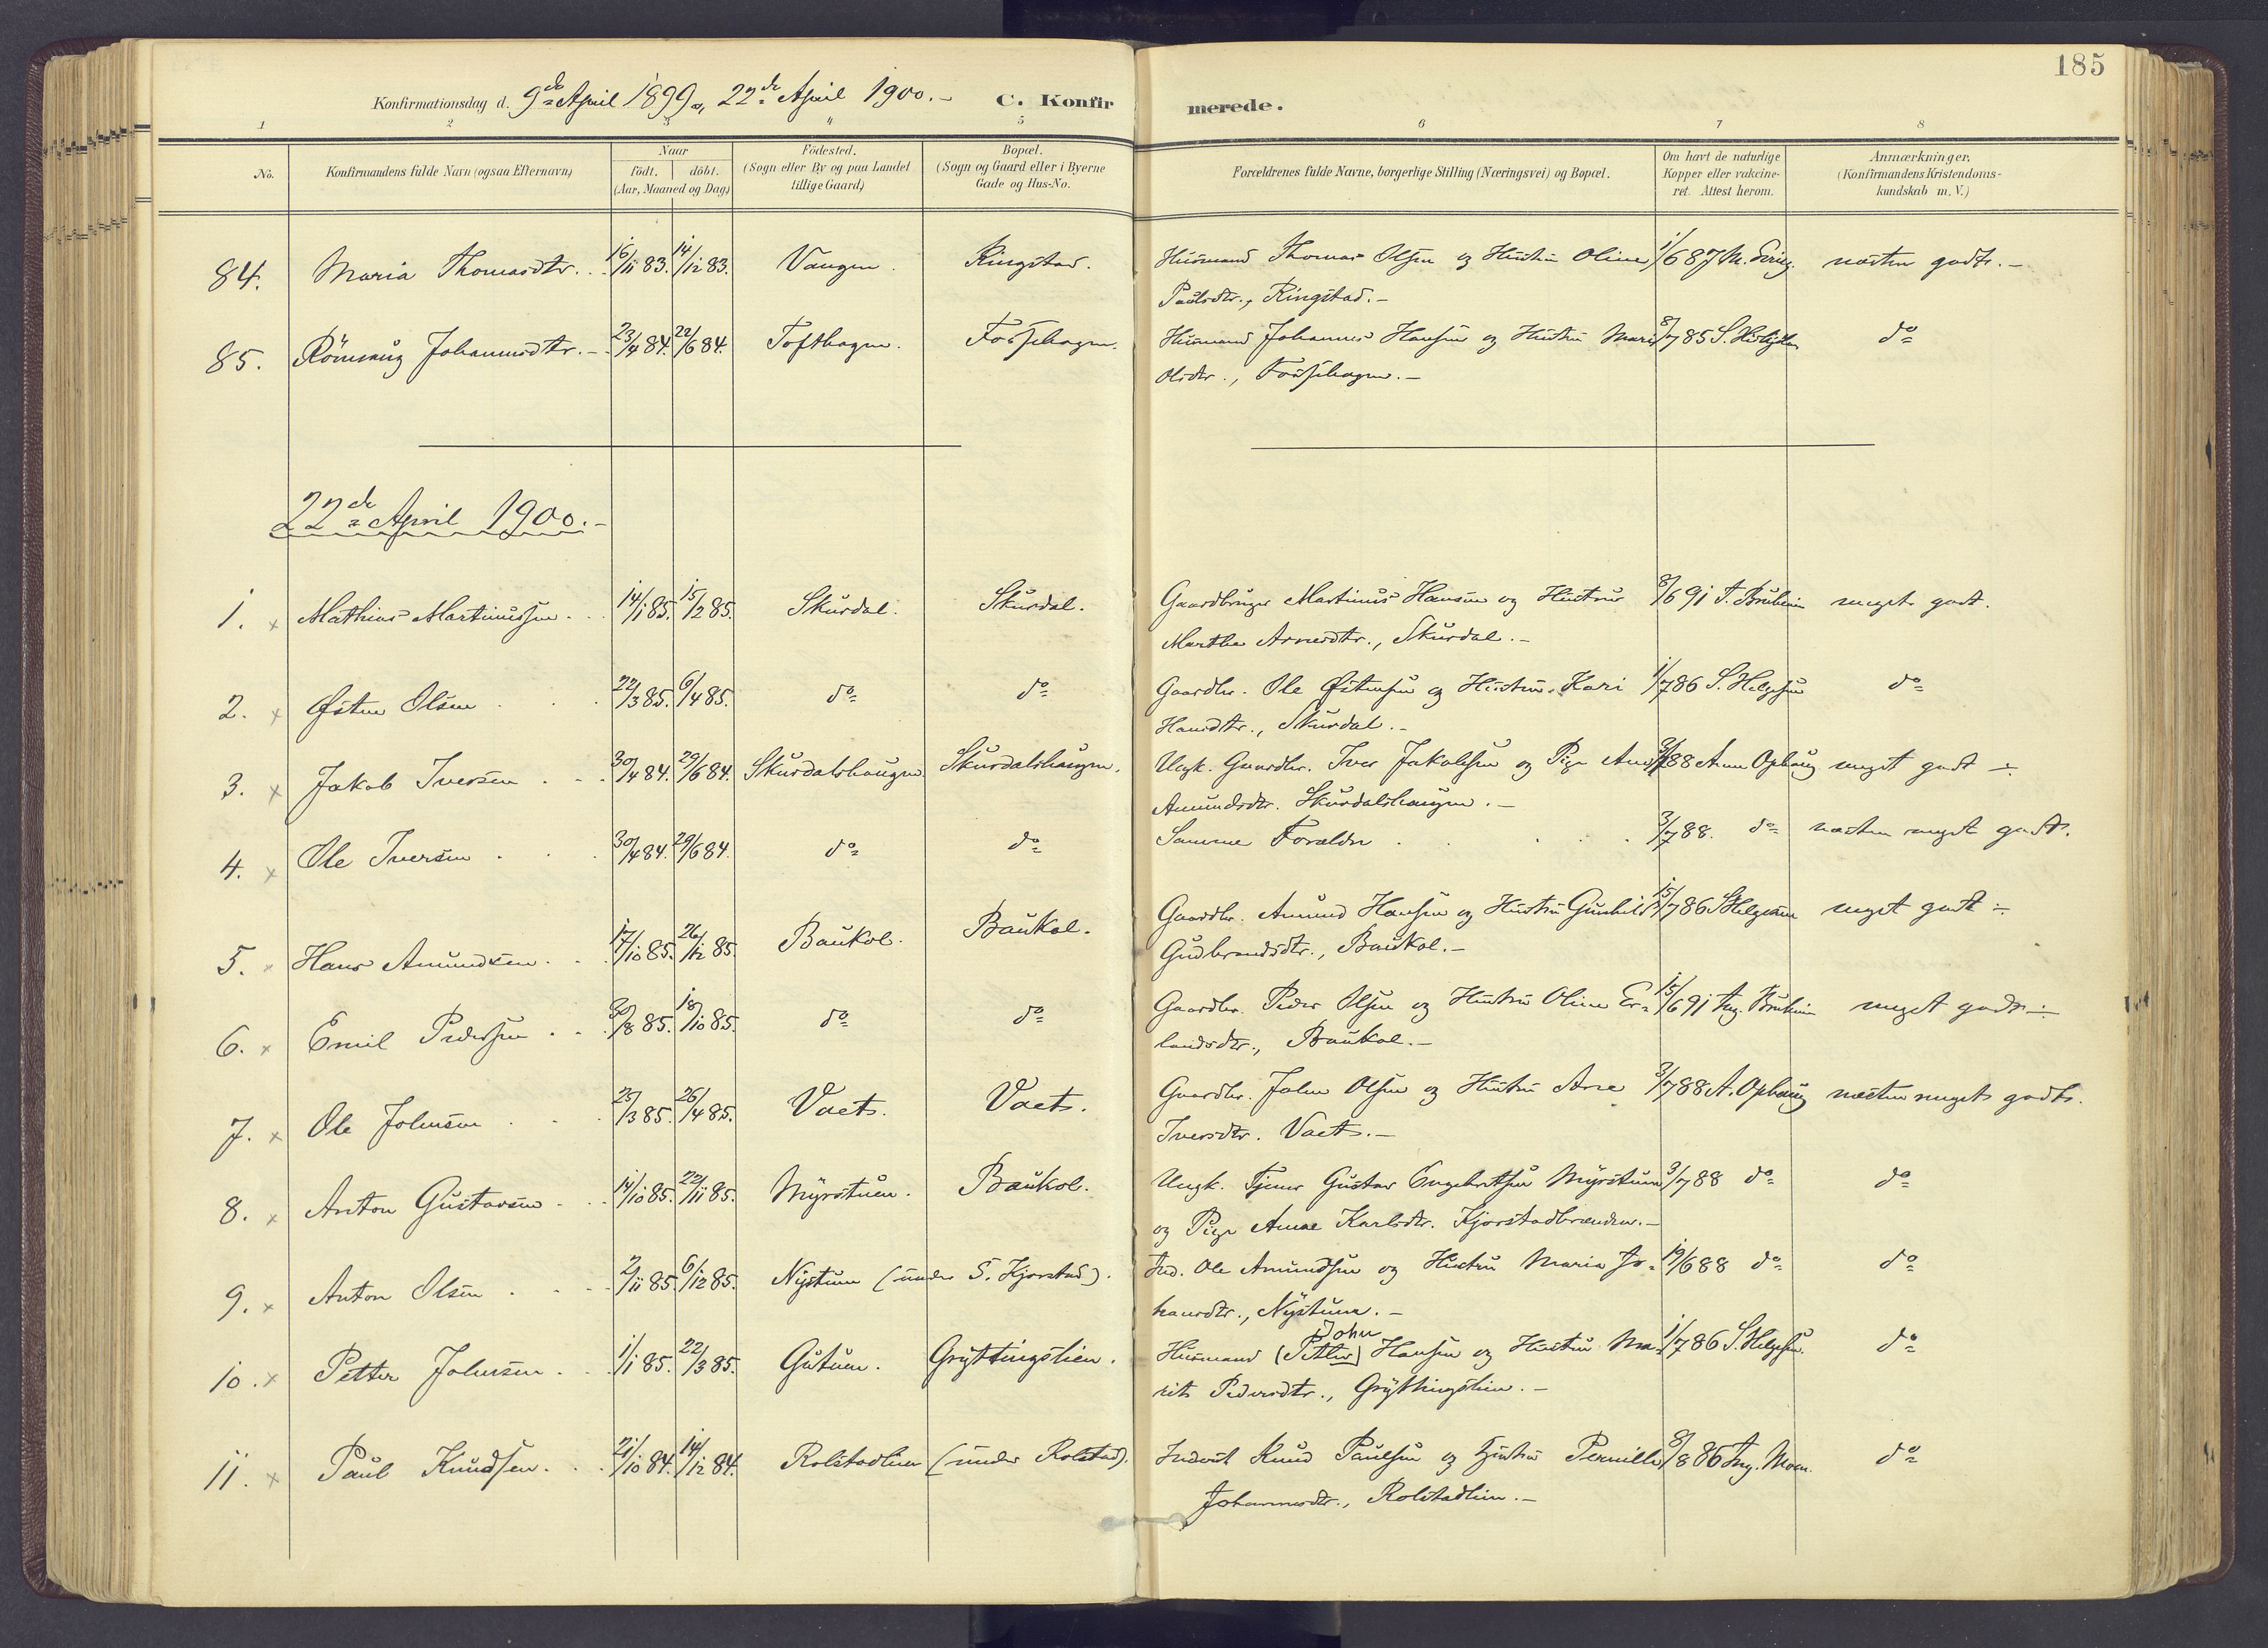 185
Konfirmationsdag d. 9de April 1899 og 22de April 1900.- C. Konfir merede.
1 2 3 4 5 6 7 8
No. Konfirmandens fulde Navn (ogsaa Efternavn) Naar födt. döbt. (Aar, Maaned og Dag) Födested. (Sogn eller By og paa Landet tillige Gaard) Bopæl. (Sogn og Gaard eller i Byerne Gade og Hus-No. Forældrenes fulde Navne, borgerlige Stilling (Næringsvei) og Bopæl. Om havt de naturlige Kopper eller vakcineret. Attest herom. Anmærkninger. (Konfirmandens Kristendomskundskab m. V.)
84. Maria Thomasdtr. 16/11 83. 14/12 83. Vangen. Ringstad. Husmand Thomas Olsen og Hustru Oline 1/6 87 næsten godt.-
Paulsdtr., Ringstad.-
85. Rönnaug Johannesdtr.- 23/4 84. 22/6 84. Tofthagen. Fossehagen. Husmand Johannes Hansen og Hustru Mari 8/7 85 do
Olsdtr., Fossehagen.-
22de April 1900.-
1. x Mathias Martinussen. 14/1 85. 15/2 85. Skurdal. Skurdal. Gaardbruger Martinus Hansen og Hustru 8/6 91 meget godt.
Marthe Arnesdtr., Skurdal.-
2. x Østen Olsen 22/3 85. 6/4 85. do do Gaardbr. Ole Østensen og Hustru Kari 1/7 86 S. Helgesen do
Hansdtr., Skurdal.-
3. x Jakob Iversen 30/4 84. 29/6 84. Skurdalshaugen. Skurdalshaugen. Ungk. Gaardbr. Iver Jakobsen og Pige 3/7 88 Ophaug meget godt ÷
Amundsdtr. Skurdalshaugen.-
4. x Ole Iversen 30/4 84. 29/6 84. do do Samme Forældre 3/7 88. do næsten meget godt.
5. x Hans Amundsen 17/10 85. 26/12 85. Baukol. Baukol. Gaardbr. Amund Hansen og Hustru Gunhild 15/7 86 S. Helgesen meget godt ÷
Gudbrandsdtr., Baukol.-
6. x Emil Pedersen 30/8 85. 18/10 85. do do Gaardbr. Peder Olsen og Hustru Oline Er- 15/6 91 meget godt ÷
landsdtr., Baukol.-
7. x Ole Johnsen 25/3 85. 26/4 85. Vaet. Vaet. Gaardbr. John Olsen og Hustru 3/7 88 A. Ophaug næsten meget godt.
Iversdtr. Vaet.-
8. x Anton Gustavsen 14/10 85. 22/11 85. Myrstuen. Baukol. Ungk. Tjener Gustav Engebretsen Myrstuen 3/7 88 do do
og Pige Anne Karlsdtr. Kjorstadbrænden.-
9. x Anton Olsen 2/11 85. 6/12 85. Nystuen (under S. Kjorstad). Ind. Ole Amundsen og Hustru Maria Jo- 19/6 88 do do
hansdtr., Nystuen.-
John
10. x Petter Johnsen 1/1 85. 22/3 85. Gutuen. Gryttingslien. Husmand (Petter) Hansen og Hustru Ma- 1/7 86 S. Helgesen. do
rit Pedersdtr., Gryttingslien.-
11. x Paul Knudsen. 21/10 84. 14/12 84. Rolstadlien (under Rolstad). Inderst Knud Paulsen og Hustru Pernille 8/8 86 Ing. Moen. do
Johannesdtr., Rolstadlien.-